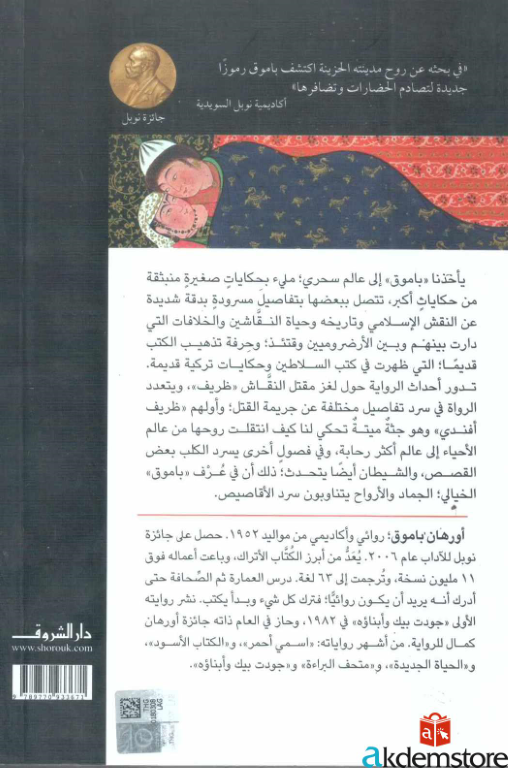 «في بحثه عن روح مدينته الحزينة اكتشف باموق رموزًا
جديدة لتصادم الحضارات وتضافرها»
أكاديمية نوبل السويدية
جائزة نوبل
يأخذنا «باموق» إلى عالم سحري؛ مليء بحكاياتٍ صغيرةٍ منبثقة
من حكاياتٍ أكبر، تتصل ببعضها بتفاصيل مسرودةٍ بدقة شديدة
عن النقش الإسلامي وتاريخه وحياة النقَّاشين والخلافات التي
دارت بينهم وبين الأرضروميين وقتئذ؛ وحِرفة تذهيب الكتب
قديمًا؛ التي ظهرت في كتب السلاطين وحكايات تركية قديمة.
تدور أحداث الرواية حول لغز مقتل النقَّاش «ظريف»، ويتعدد
الرواة في سرد تفاصيل مختلفة عن جريمة القتل؛ وأولهم «ظريف
أفندي» وهو جثةٌ ميتةٌ تحكي لنا كيف انتقلت روحها من عالم
الأحياء إلى عالم أكثر رحابة، وفي فصولٍ أخرى يسرد الكلب بعض
القصص، والشيطان أيضًا يتحدث؛ ذلك أن في عُرْف «باموق»
الخيالي؛ الجماد والأرواح يتناوبون سرد الأقاصيص.
أورهان باموق؛ روائي وأكاديمي من مواليد ١٩٥٢. حصل على جائزة
نوبل للآداب عام ٢٠٠٦. يُعَدُّ من أبرز الكُتَّاب الأتراك، وباعت أعماله فوق
١١ مليون نسخة، وتُرجمت إلى ٦٣ لغة. درس العمارة ثم الصِّحافة حتى
أدرك أنه يريد أن يكون روائيًّا؛ فترك كل شيء وبدأ يكتب. نشر روايته
الأولى «جودت بيك وأبناؤه» في ١٩٨٢، وحاز في العام ذاته جائزة أورهان
كمال للرواية. من أشهر رواياته: «اسمي أحمر»، و«الكتاب الأسود»،
و«الحياة الجديدة»، و«متحف البراءة» و«جودت بيك وأبناؤه».
دار الشروق
www.shorouk.com
9 789770 933671
akdemstore